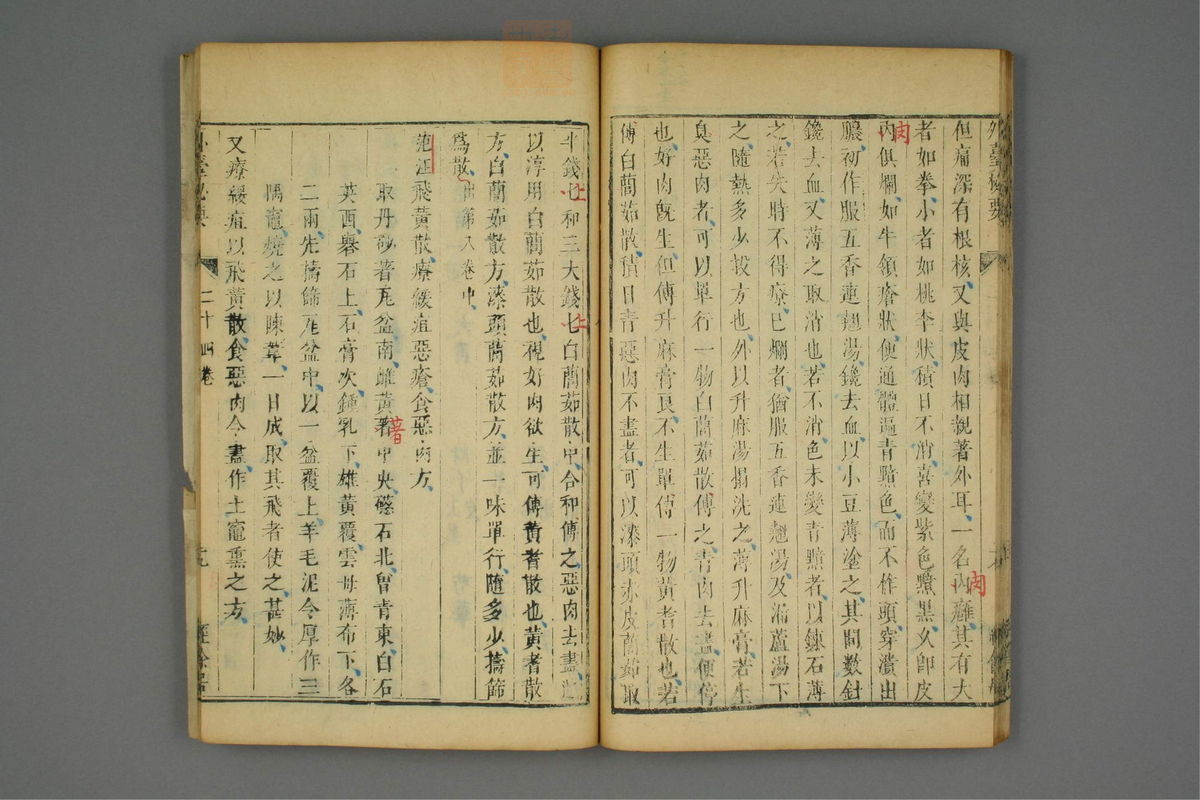 外臺秘要
但痛深有根核又與皮肉相親著外耳一名內癰其有大
者如拳小者如桃李狀積日不消喜變紫色黯黑久卽皮
內俱爛如牛領瘡狀便通體遍青黯色而不作頭穿潰出
膿初作服五香連翹湯鑱去血以小豆薄塗之其間數針
鑱去血又薄之取消也若不消色未變青黯者以鍊石薄
之若失時不得療已爛者猶服五香連翹湯及漏蘆湯下
之隨熱多少投方也外以升麻湯搨洗之薄升麻膏若生
臭惡肉者可以單行一物白䕡茹散傅之青肉去盡便停
也好肉旣生但傅升麻膏良不生單傅一物黃耆散也若
傅白䕡茹散積日青惡肉不盡者可以漆頭赤皮䕡茹取
半錢匕和三大錢匕白䕡茹散中合和傅之惡肉去盡
以淳用白䕡茹散也視好肉欲生可傅黃耆散也黃耆散
方白䕡茹散方漆頭䕡茹散方並一味單行隨多少擣篩
爲散出第八卷中
范汪飛黃散療緩疽惡瘡食惡肉方
取丹砂著瓦盆南雌黃著中央磁石北曾青東白石
英西礜石上石膏次鍾乳下雄黃覆雲母薄布下各
二兩先擣篩瓦盆中以一盆覆上羊毛泥令厚作三
隅竈燒之以陳葦一日成取其飛者使之甚妙
又療緩疽以飛黃散食惡肉令盡作土竈熏之方
外臺秘要
二十四卷
經餘居
上
上
肉
肉
著